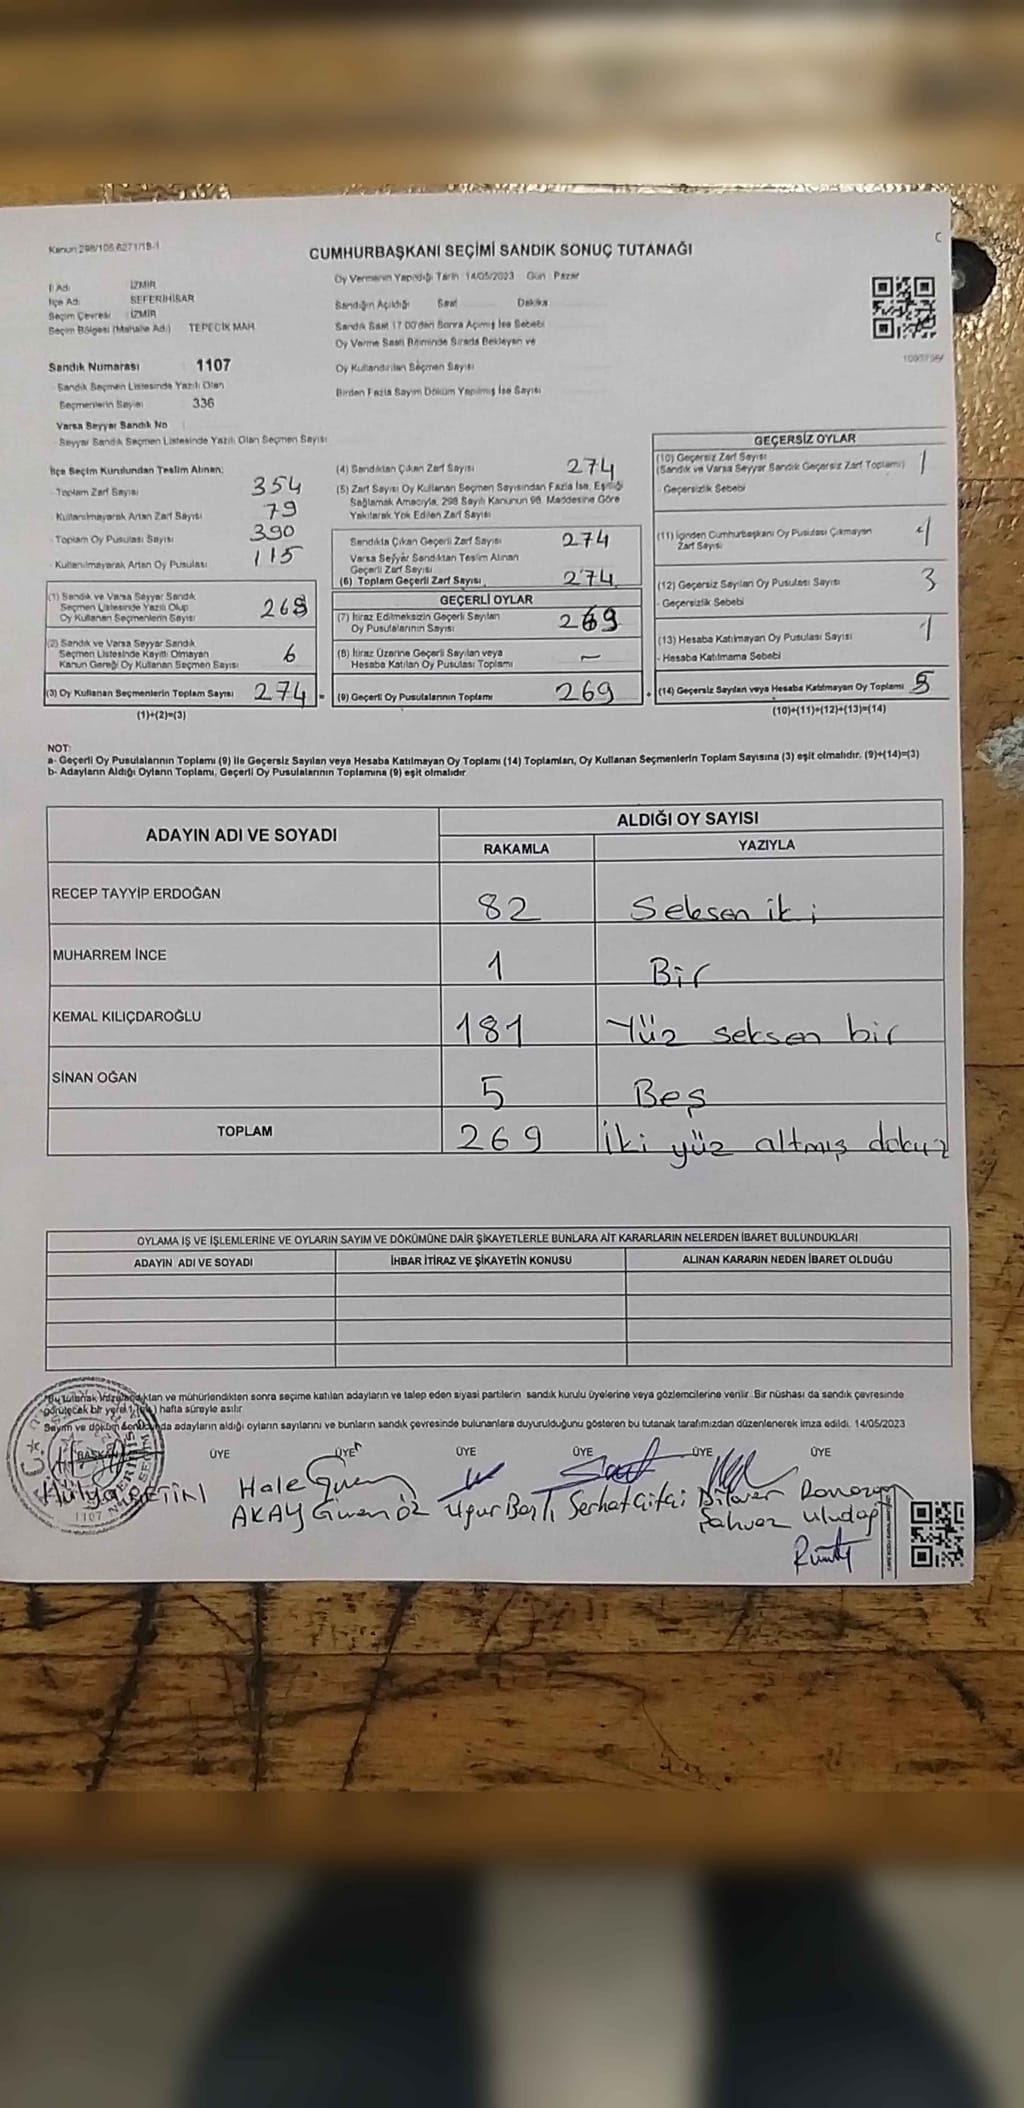 Kanun 298/105 6271/1B-1
C
CUMHURBAŞKANI SEÇİMİ SANDIK SONUÇ TUTANAĞI
Oy Vermenin Yapıldığı Tarih 14/05/2023 Gün Pazar
İl Adı İZMİR
İlçe Adı SEFERİHİSAR
Seçim Çevresi İZMİR
Seçim Bölgesi (Mahalle Adı) TEPECİK MAH.
Sandığın Açıldığı Saat Dakika
Sandık Saat 17.00'den Sonra Açımış İse Sebebi
Oy Verme Saati Bitiminde Sırada Bekleyen ve
Oy Kullandırılan Seçmen Sayısı
Birden Fazla Sayım Döküm Yapılmış İse Sayısı
Sandık Numarası 1107
Sandık Seçmen Listesinde Yazılı Olan
Seçmenlerin Sayısı 336
Varsa Seyyar Sandık No
Seyyar Sandık Seçmen Listesinde Yazılı Olan Seçmen Sayısı
İlçe Seçim Kurulundan Teslim Alınan:
Toplam Zarf Sayısı 354
Kullanılmayarak Artan Zarf Sayısı 79
Toplam Oy Pusulası Sayısı 390
Kullanılmayarak Artan Oy Pusulası 115
(1) Sandık ve Varsa Seyyar Sandık
Seçmen Listesinde Yazılı Olup
Oy Kullanan Seçmenlerin Sayısı 268
(2) Sandık ve Varsa Seyyar Sandık
Seçmen Listesinde Kayıtlı Olmayan
Kanun Gereği Oy Kullanan Seçmen Sayısı 6
(3) Oy Kullanan Seçmenlerin Toplam Sayısı 274 =
(1)+(2)=(3)
(4) Sandıktan Çıkan Zarf Sayısı 274
(5) Zarf Sayısı Oy Kullanan Seçmen Sayısından Fazla İse, Eşitliği
Sağlamak Amacıyla, 298 Sayılı Kanunun 98. Maddesine Göre
Yakılarak Yok Edilen Zarf Sayısı
Sandıkta Çıkan Geçerli Zarf Sayısı 274
Varsa Seyyar Sandıktan Teslim Alınan
Geçerli Zarf Sayısı
(6) Toplam Geçerli Zarf Sayısı 274
GEÇERLİ OYLAR
(7) İtiraz Edilmeksizin Geçerli Sayılan
Oy Pusulalarının Sayısı 269
(8) İtiraz Üzerine Geçerli Sayılan veya
Hesaba Katılan Oy Pusulası Toplamı –
(9) Geçerli Oy Pusulalarının Toplamı 269 +
GEÇERSİZ OYLAR
(10) Geçersiz Zarf Sayısı
(Sandık ve Varsa Seyyar Sandık Geçersiz Zarf Toplamı) 1
- Geçersizlik Sebebi
(11) İçinden Cumhurbaşkanı Oy Pusulası Çıkmayan
Zarf Sayısı
(12) Geçersiz Sayılan Oy Pusulası Sayısı 3
- Geçersizlik Sebebi
(13) Hesaba Katılmayan Oy Pusulası Sayısı 1
- Hesaba Katılmama Sebebi
(14) Geçersiz Sayılan veya Hesaba Katılmayan Oy Toplamı 5
(10)+(11)+(12)+(13)=(14)
NOT:
a- Geçerli Oy Pusulalarının Toplamı (9) ile Geçersiz Sayılan veya Hesaba Katılmayan Oy Toplamı (14) Toplamları, Oy Kullanan Seçmenlerin Toplam Sayısına (3) eşit olmalıdır. (9)+(14)=(3)
b- Adayların Aldığı Oyların Toplamı, Geçerli Oy Pusulalarının Toplamına (9) eşit olmalıdır
ADAYIN ADI VE SOYADI ALDIĞI OY SAYISI
RAKAMLA YAZIYLA
RECEP TAYYİP ERDOĞAN 82 Seksen iki
MUHARREM İNCE 1 Bir
KEMAL KILIÇDAROĞLU 181 Yüz seksen bir
SİNAN OĞAN 5 Beş
TOPLAM 269 İki yüz altmış dokuz
OYLAMA İŞ VE İŞLEMLERİNE VE OYLARIN SAYIM VE DÖKÜMÜNE DAİR ŞİKAYETLERLE BUNLARA AİT KARARLARIN NELERDEN İBARET BULUNDUKLARI
ADAYIN ADI VE SOYADI İHBAR İTİRAZ VE ŞİKAYETİN KONUSU ALINAN KARARIN NEDEN İBARET OLDUĞU
Bu tutanak imzalandıktan ve mühürlendikten sonra seçime katılan adayların ve talep eden siyasi partilerin sandık kurulu üyelerine veya gözlemcilerine verilir. Bir nüshası da sandık çevresinde
görülecek bir yere 1 hafta süreyle asılır
Sayım ve döküm sonucunda adayların aldığı oyların sayılarını ve bunların sandık çevresinde bulunanlara duyurulduğunu gösteren bu tutanak tarafımızdan düzenlenerek imza edildi. 14/05/2023
BAŞKAN ÜYE ÜYE ÜYE ÜYE ÜYE ÜYE
Hülya ÇETİN Hale Ramazan
AKAY Uğur Serhat Çiftçi Dilaver Uludağ
1107